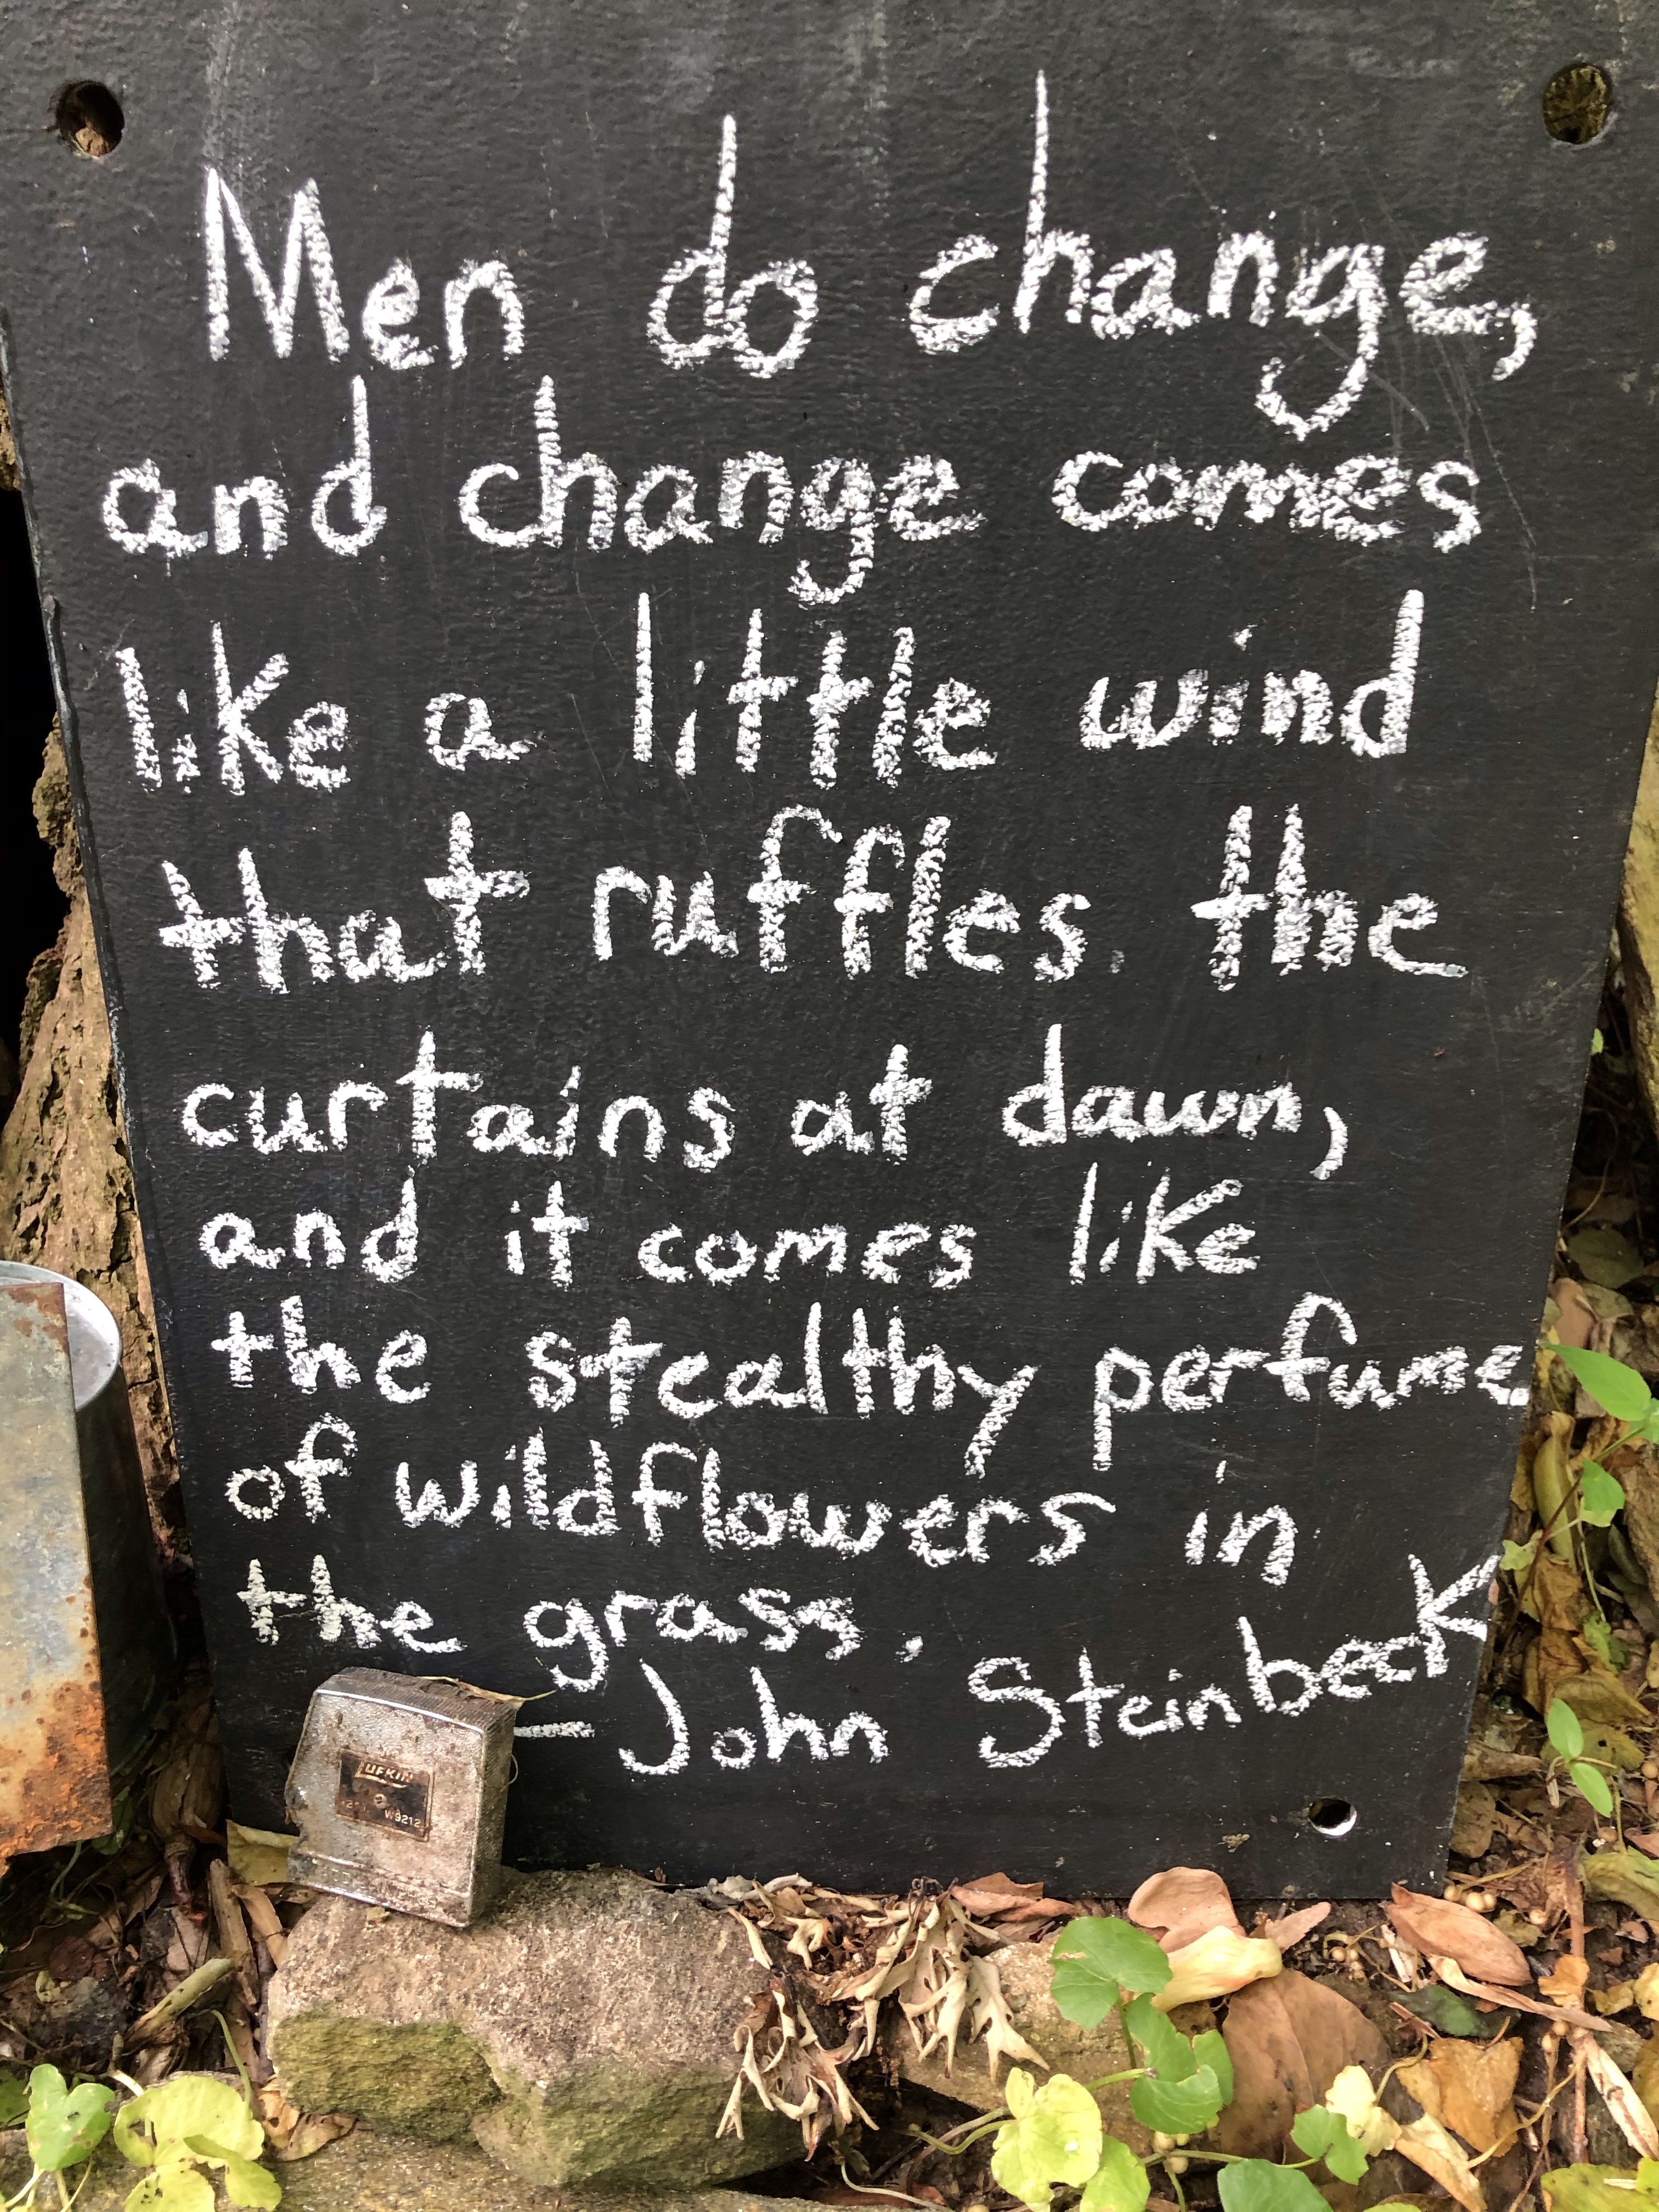 Men do change,
and change comes
like a little wind
that ruffles the
curtains at dawn,
and it comes like
the stealthy perfume
of wildflowers in
the grass.
—John Steinbeck
LUFKIN
W9212